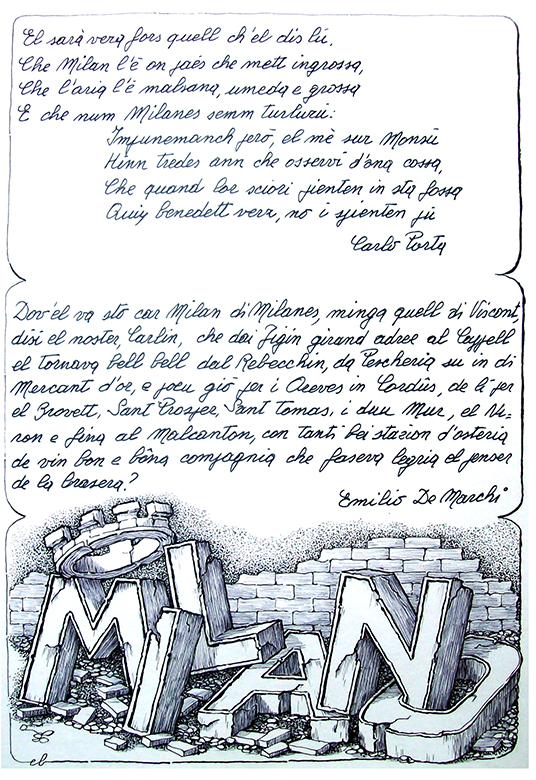 El sarà vera fors quell ch'el dis lú,
Che Milan l'è on paés che mett ingrossa,
Che l'aria l'è malsana, umeda e grossa
E che num Milanes semm turlurú:
Impunemanch però, el mè sur Monsú
Hinn tredes ann che osservi d'ona cossa,
Che quand lor sciori pienten in sta fossa
Quij benedett verz, no i spienten pú
Carlo Porta
Dov'el va sto car Milan di Milanes, minga quell di Viscont,
disi el noster Carlin, che dai Figin girand adree al Coppell
el tornava bell bell dal Rebecchin, da Pescheria su in di
Mercant d'or, e pocu giò per i Oreves in Cordús, de lì per
el Brovett, Sant Prosper, Sant Tomas, i duu Mur, el Ni-
ron e fina al Malcanton, con tanti bei stazion d'osteria
de vin bon e bôna compagnia che faseva legria el penser
de la brasera?
Emilio De Marchi
MILANO